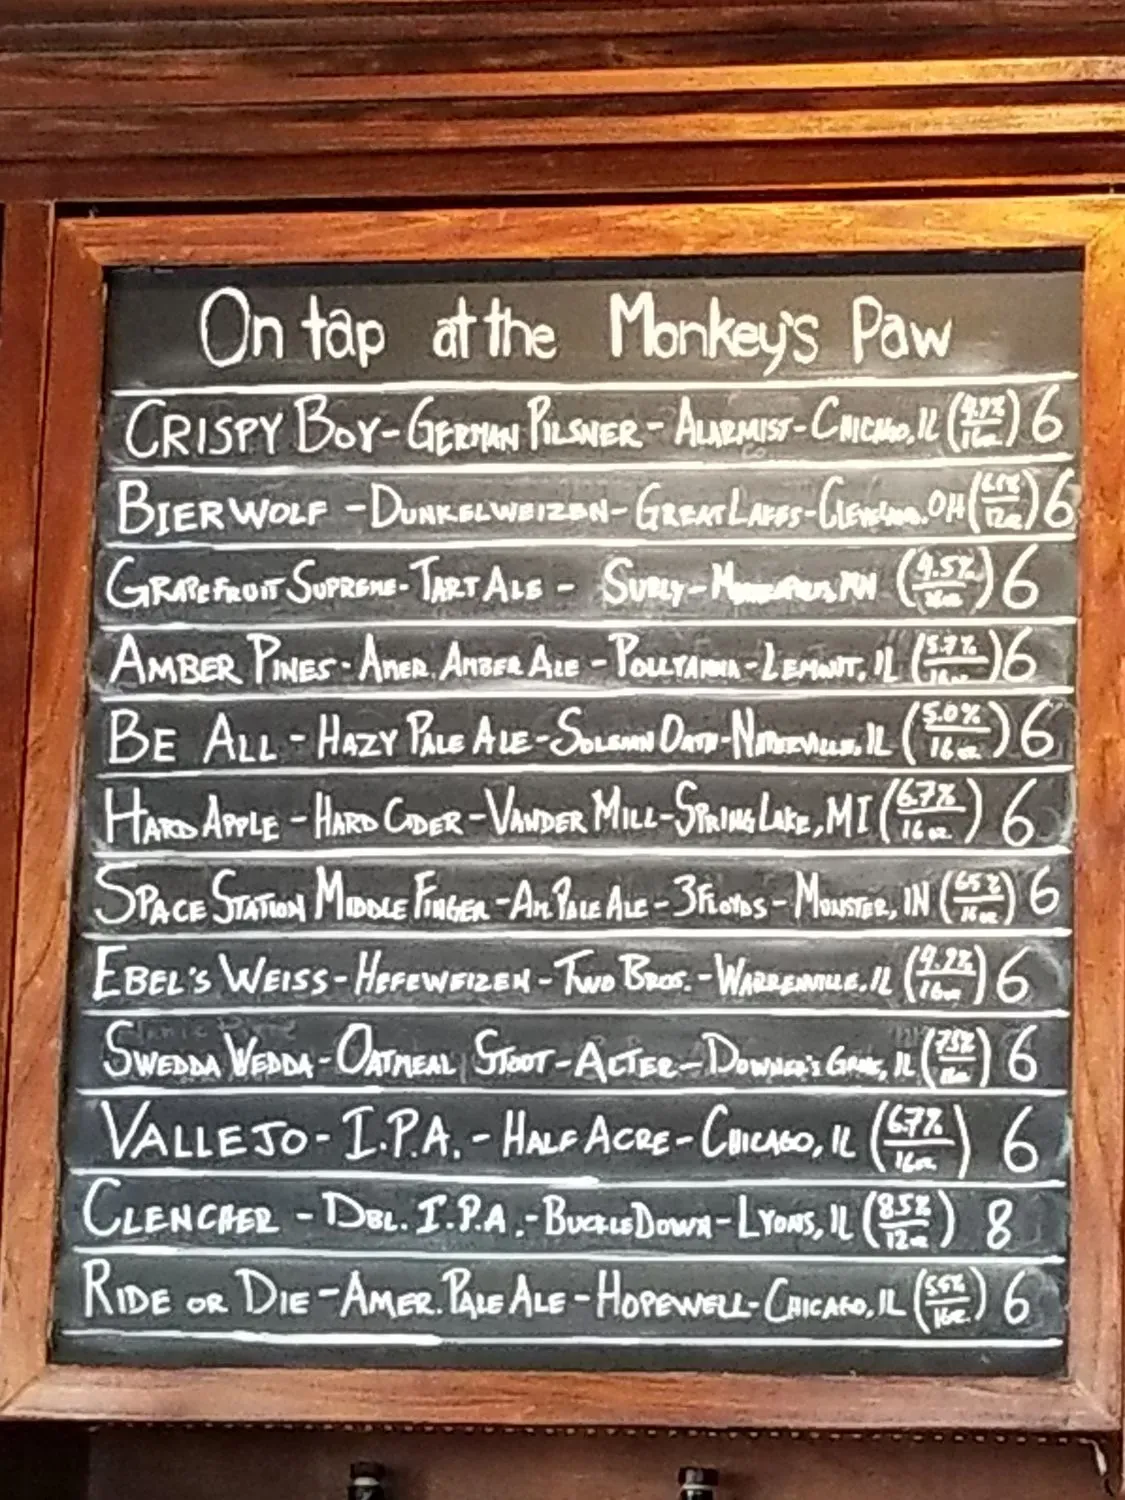 On tap at the Monkey's Paw
CRISPY BOY - GERMAN PILSNER - ALARMIST - CHICAGO, IL 16oz 6
BIERWOLF - DUNKELWEIZEN - GREAT LAKES - CLEVELAND, OH 12oz 6
GRAPEFRUIT SUPREME - TART ALE - SURLY - MINNEAPOLIS, MN (4.5% 16oz) 6
AMBER PINES - AMER. AMBER ALE - POLLYANNA - LEMONT, IL (5.7% 16oz) 6
BE ALL - HAZY PALE ALE - SOLEMN OATH - NAPERVILLE, IL (5.0% 16oz) 6
HARD APPLE - HARD CIDER - VANDER MILL - SPRING LAKE, MI (6.7% 16oz) 6
SPACE STATION MIDDLE FINGER - AM. PALE ALE - 3 FLOYDS - MUNSTER, IN (6.5% 16oz) 6
EBEL'S WEISS - HEFEWEIZEN - TWO BROS. - WARRENVILLE, IL (4.9% 16oz) 6
SWEDDA WEDDA - OATMEAL STOUT - ALTER - DOWNER'S GROVE, IL 6
VALLEJO - I.P.A. - HALF ACRE - CHICAGO, IL (6.7% 16oz) 6
CLENCHER - DBL. I.P.A. - BUCKLEDOWN - LYONS, IL (8.5% 12oz) 8
RIDE OR DIE - AMER. PALE ALE - HOPEWELL - CHICAGO, IL (5.5% 16oz) 6